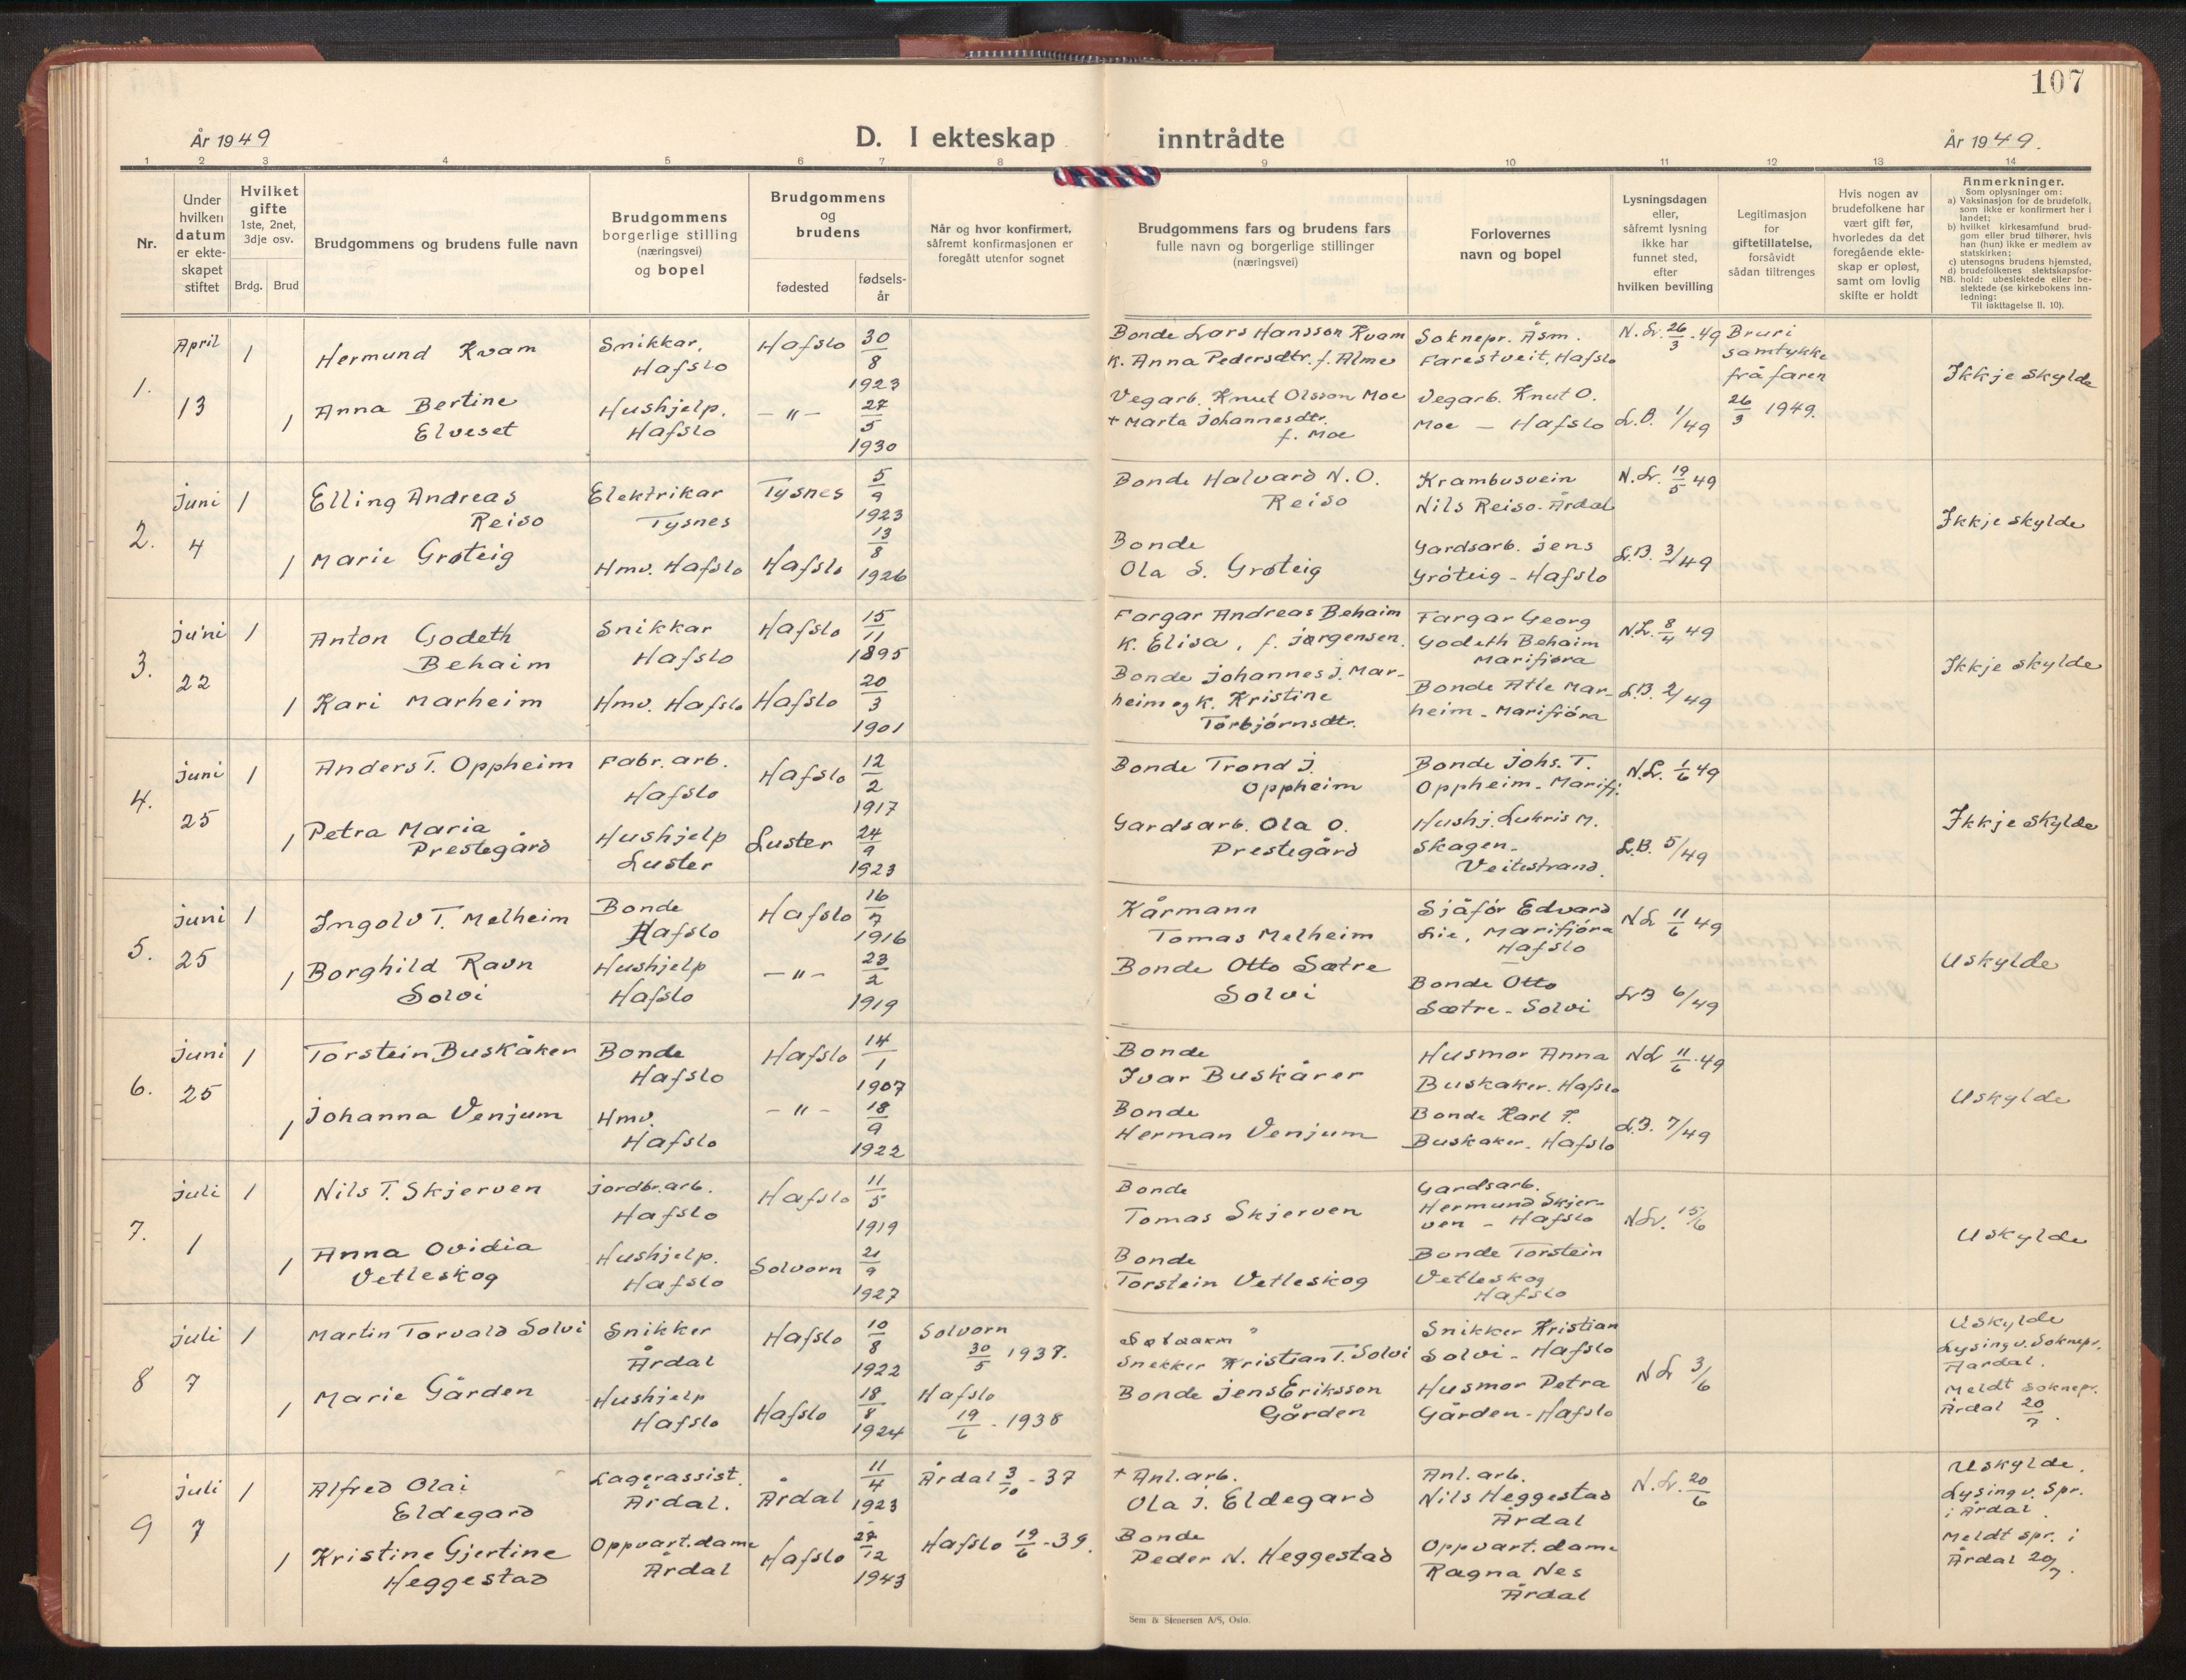 107
År 1949
D. I ekteskap inntrådte
År 1949.
1 2 3 4 5 6 7 8 9 10 11 12 13 14
Nr.
Under
hvilken
datum
er ekte-
skapet
stiftet
Hvilket
gifte
1ste, 2net,
3dje osv.
Brdg. Brud
Brudgommens og brudens fulle navn
Brudgommens
borgerlige stilling
(næringsvei)
og bopel
Brudgommens
og
brudens
fødested
fødsels-
år
Når og hvor konfirmert,
såfremt konfirmasjonen er
foregått utenfor sognet
Brudgommens fars og brudens fars
fulle navn og borgerlige stillinger
(næringsvei)
Forlovernes
navn og bopel
Lysningsdagen
eller,
såfremt lysning
ikke har
funnet sted,
efter
hvilken bevilling
Legitimasjon
for
giftetillatelse,
forsåvidt
sådan tiltrenges
Hvis nogen av
brudefolkene har
vært gift før,
hvorledes da det
foregående ekte-
skap er opløst,
samt om lovlig
skifte er holdt
Anmerkninger.
Som oplysninger om:
a) Vaksinasjon for de brudefolk,
som ikke er konfirmert her i
landet;
b) hvilket kirkesamfund brud-
gom eller brud tilhører, hvis
han (hun) ikke er medlem av
statskirken;
c) utensogns brudens hjemsted,
d) brudefolkenes slektskapsfor-
NB. hold: ubeslektede eller be-
slektede (se kirkebokens inn-
ledning:
Til iakttagelse II. 10).
1.
April
13
1
Hermund Kvam
Snikkar.
Hafslo
Hafslo
30/8
1923
Bonde Lars Hansson Kvam
K. Anna Pedersdtr. f. Alme
Soknepr. Åsm.
Farestveit, Hafslo
N. Lr. 26/3. 49
Bruri
samtykke
frå faren
26/3 1949.
Ikkje skylde
1
Anna Bertine
Elveset
Hushjelp.
Hafslo
— " —
27/5
1930
Vegarb. Knut Olsson Moe
+ Marta Johannesdtr.
f. Moe
Vegarb. Knut O.
Moe — Hafslo
L.B. 1/49
2.
Juni
4
1
Elling Andreas
Reiso
Elektrikar
Tysnes
Tysnes
5/9
1923
Bonde Halvard N. O.
Reiso
Krambusvein
Nils Reiso - Årdal
N. Lr. 19/5 49
Ikkje skylde
1
Marie Grøteig
Hmv. Hafslo
Hafslo
13/8
1926
Bonde
Ola S. Grøteig
Gardsarb. Jens
Grøteig - Hafslo
L.B. 3/49
3.
Juni
22
1
Anton Godeth
Behaim
Snikkar
Hafslo
Hafslo
15/11
1895
Fargar Andreas Behaim
K. Elisa, f. Jørgensen.
Fargar Georg
Godeth Behaim
Marifjøra
N.L. 8/4 49
Ikkje skylde
1
Kari Marheim
Hmv. Hafslo
Hafslo
20/3
1901
Bonde Johannes J. Mar-
heim og K. Kristine
Torbjørnsdtr.
Bonde Atle Mar-
heim - Marifjøra
L.B. 2/49
4.
Juni
25
1
Anders T. Oppheim
Fabr. arb.
Hafslo
Hafslo
12/2
1917
Bonde Trond J.
Oppheim
Bonde Johs. T.
Oppheim - Marifj.
N.L. 1/6 49
Ikkje skylde
1
Petra Maria
Prestegård
Hushjelp
Luster
Luster
24/9
1923
Gardsarb. Ola O.
Prestegård
Hushj. Lukris M.
Skagen -
Veitestrand.
L.B. 5/49
5.
Juni
25
1
Ingolv T. Melheim
Bonde
Hafslo
Hafslo
16/7
1916
Kårmann
Tomas Melheim
Sjåfør Edvard
Lie, Marifjøra
Hafslo
N L 11/6 49
Uskylde
1
Borghild Ravn
Solvi
Hushjelp
Hafslo
— " —
23/2
1919
Bonde Otto Sætre
Solvi
Bonde Otto
Sætre - Solvi
LB 6/49
6.
Juni
25
1
Torstein Buskåker
Bonde
Hafslo
Hafslo
14/1
1907
Bonde
Ivar Buskårer
Husmor Anna
Buskaker. Hafslo
N L 11/6. 49
Uskylde
1
Johanna Venjum
Hmv.
Hafslo
— " —
18/9
1922
Bonde
Herman Venjum
Bonde Karl T.
Buskaker. Hafslo
L.B. 7/49
7.
Juli
1
1
Nils T. Skjerven
Jordbr. arb.
Hafslo
Hafslo
11/5
1919
Bonde
Tomas Skjerven
Gardsarb.
Hermund Skjer-
ven - Hafslo
N Lr. 15/6
Uskylde
1
Anna Ovidia
Vetleskog
Hushjelp.
Hafslo
Solvorn
21/9
1927
Bonde
Torstein Vetleskog
Bonde Torstein
Vetleskog
Hafslo
8
Juli
7
1
Martin Torvald Solvi
Snikker
Årdal
Hafslo
10/8
1922
Solvorn
30/5 1937.
Snekker Kristian T. Solvi
Snikker Kristian
Solvi - Hafslo
N L 3/6
Uskylde
Lysing v. Soknepr.
Aardal.
Meldt soknepr.
Årdal 20/7.
1
Marie Gården
Hushjelp
Hafslo
Hafslo
18/8
1924
Hafslo
19/6 - 1938
Bonde Jens Eriksson
Gården
Husmor Petra
Gården - Hafslo
9
Juli
7
1
Alfred Olai
Eldegard
Lagerassist.
Årdal.
Årdal
11/4
1923
Årdal 3/10 - 37
+ Anl. arb.
Ola J. Eldegard
Anl. arb.
Nils Heggestad
Årdal
N. Lr. 20/6
Uskylde.
Lysing v. Spr.
i Årdal.
Meldt spr. i
Årdal 20/7.
1
Kristine Gjertine
Heggestad
Oppvart. dame
Årdal
Hafslo
27/12
1943
Hafslo 19/6 - 39.
Bonde
Peder N. Heggestad
Oppvart. dame
Ragna Nes
Årdal
Sem & Stenersen A/S, Oslo.